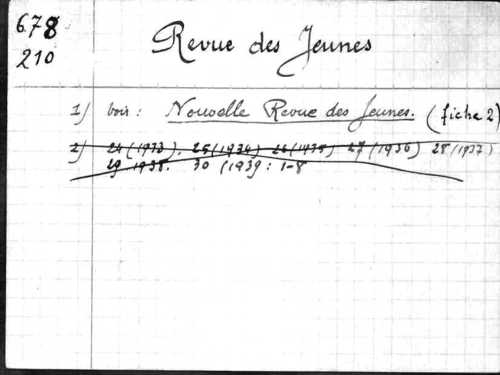 678
210
Revue des Jeunes
1) voir : Nouvelle Revue des Jeunes. (fiche 2)
2) 24 (1933). 25 (1934) 26 (1935) 27 (1936) 28 (1937)
29 1938. 30 (1939: 1-8